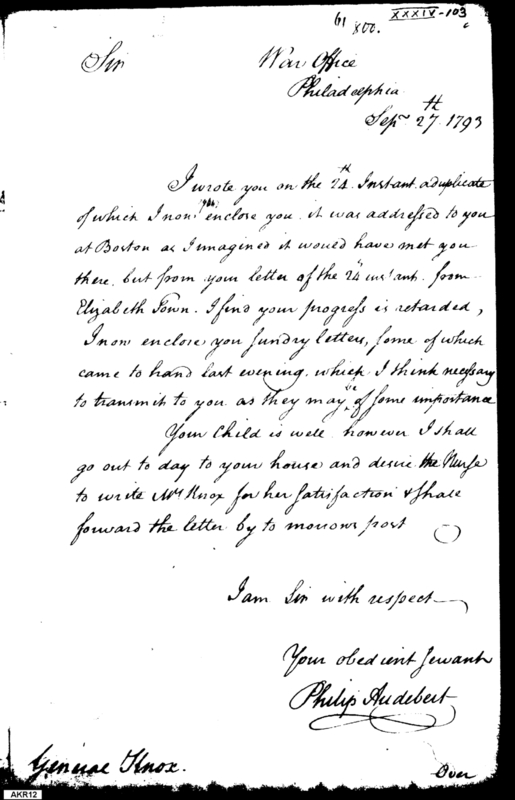 61
XXXIV-103
Sir
War Office
Philadelphia
Sepr 27th 1793
I wrote you on the 24th Instant a duplicate
of which I now enclose you it was addressed to you
at Boston as I imagined it would have met you
there. but from your letter of the 24 instant from
Elizabeth Town. I find your progress is retarded,
I now enclose you sundry letters, some of which
came to hand last evening. which I think necessary
to transmit to you as they may be of some importance
Your Child is well however I shall
go out to day to your house and desire the Nurse
to write Mrs Knox for her satisfaction & shall
forward the letter by to morrows post
I am Sir with respect
Your obedient servant
Philip Audebert
General Knox.
Over
AKR12